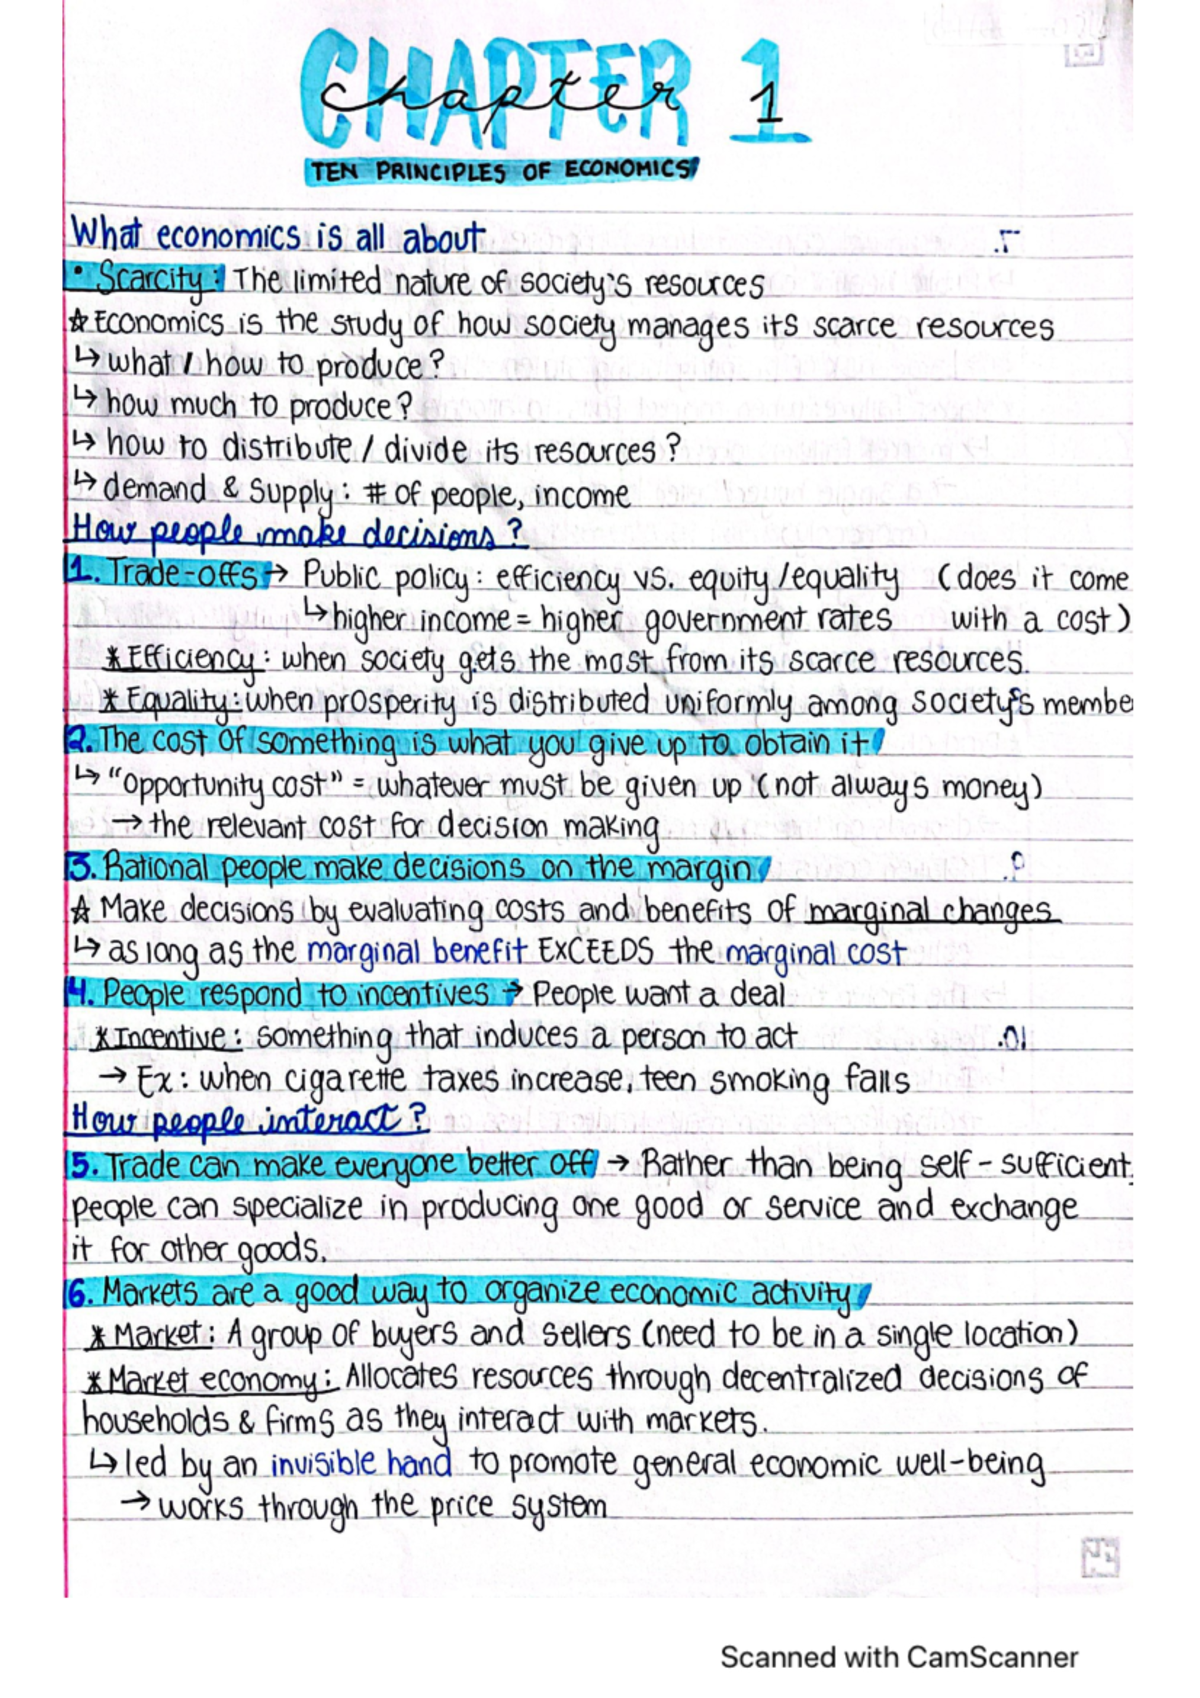 CHAPTER 1
chapter 1
TEN PRINCIPLES OF ECONOMICS
What economics is all about
• Scarcity: The limited nature of society's resources
☆ Economics is the study of how society manages its scarce resources
↳ what / how to produce?
↳ how much to produce?
↳ how to distribute / divide its resources?
↳ demand & supply: # of people, income
How people make decisions?
1. Trade-offs → Public policy: efficiency vs. equity/equality (does it come
↳ higher income = higher government rates with a cost)
* Efficiency: when society gets the most from its scarce resources.
* Equality: when prosperity is distributed uniformly among society's membe
2. The cost of something is what you give up to obtain it
↳ "Opportunity cost" = whatever must be given up (not always money)
→ the relevant cost for decision making
3. Rational people make decisions on the margin
☆ Make decisions by evaluating costs and benefits of marginal changes
↳ as long as the marginal benefit EXCEEDS the marginal cost
4. People respond to incentives → People want a deal
* Incentive: something that induces a person to act
→ Ex: when cigarette taxes increase, teen smoking falls
How people interact?
5. Trade can make everyone better off → Rather than being self-sufficient,
people can specialize in producing one good or service and exchange
it for other goods.
6. Markets are a good way to organize economic activity
* Market: A group of buyers and sellers (need to be in a single location)
* Market economy: Allocates resources through decentralized decisions of
households & firms as they interact with markets.
↳ led by an invisible hand to promote general economic well-being
→ works through the price system
Scanned with CamScanner